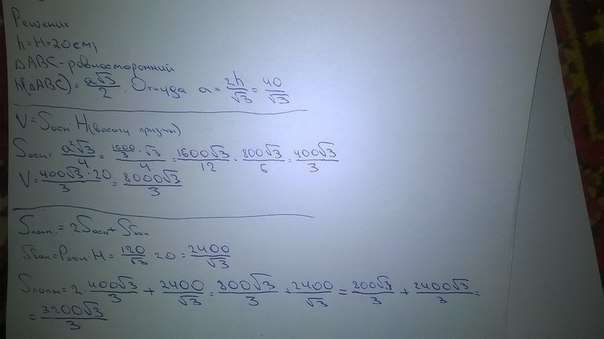 Решение
h=H=20см;
△ABC-равносторонний
h(△ABC)=a√3/2. Откуда a=2h/√3=40/√3
V=Sосн H(высоту призмы)
Sосн=a²√3/4=1600/3·√3/4=1600√3/12=800√3/6=400√3/3
V=400√3·20/3=8000√3/3
Sполн.=2Sосн+Sбок
Sбок=Pосн·H=120/√3·20=2400/√3
Sполн=2·400√3/3+2400/√3=800√3/3+2400/√3=800√3/3+2400√3/3=
=3200√3/3